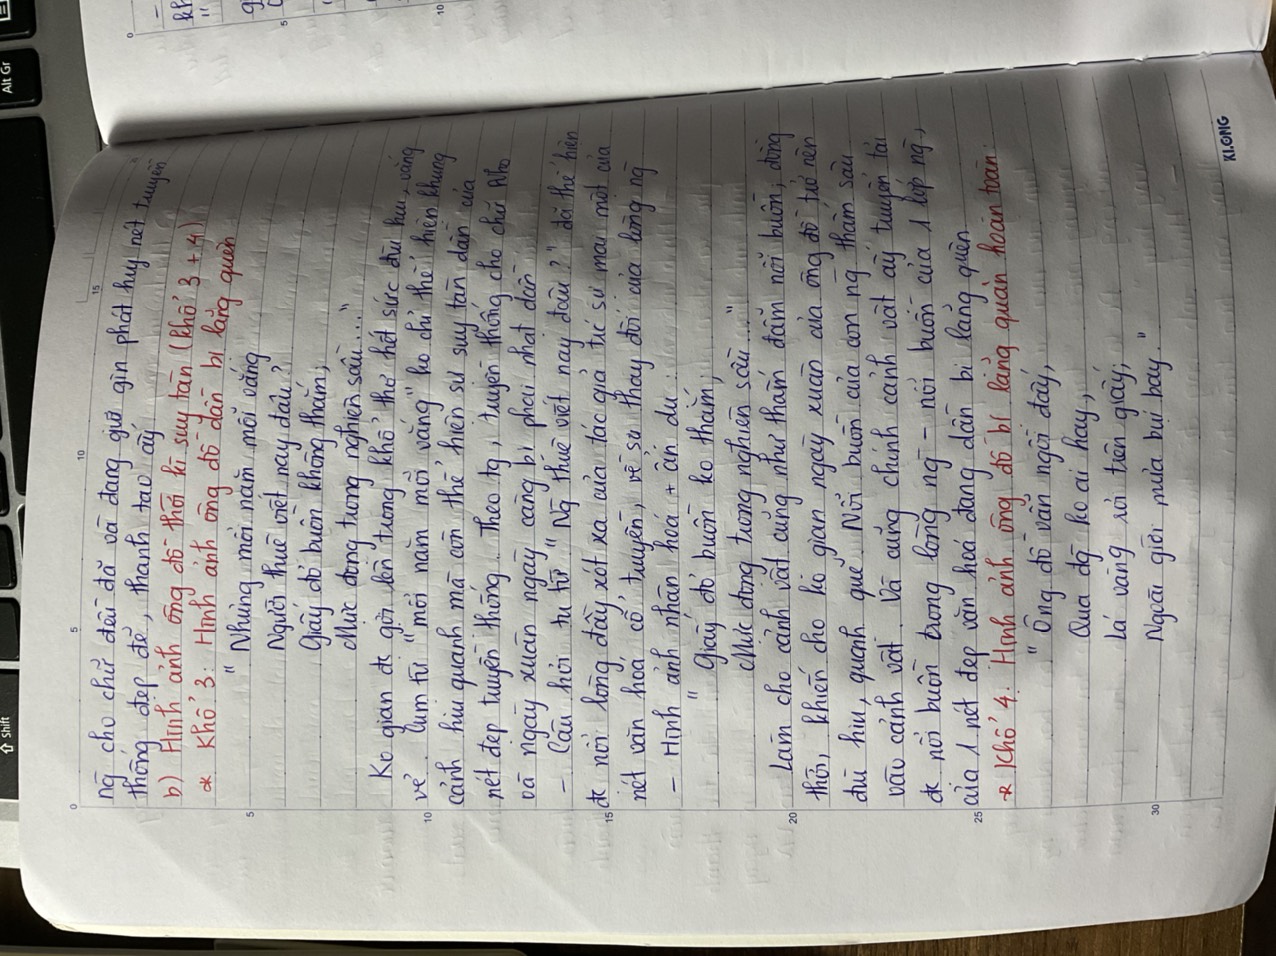 Shift
Alt Gr
0 5 10 15
ng̃ cho chữ đều đã và đang giữ gìn phát huy nét truyền
thống đẹp đẽ, thanh tao ấy
b) Hình ảnh ông đồ thời kì suy tàn (khổ 3 + 4)
* Khổ 3: Hình ảnh ông đồ dần bị lãng quên
" Nhưng mỗi năm mỗi vắng
5
Người thuê viết nay đâu?
Giấy đỏ buồn không thắm;
Mực đọng trong nghiên sầu..."
Ko gian đc gợi lên trong khổ thơ hết sức đìu hiu, vắng
vẻ. Cụm từ "mỗi năm mỗi vắng" ko chỉ thể hiện khung
10
cảnh hiu quạnh mà còn thể hiện sự suy tàn dần của
nét đẹp truyền thống. Theo tg, truyền thống cho chữ Nho
và ngày xuân ngày càng bị phai nhạt dần
- Câu hỏi tu từ "Ng̃ thuê viết nay đâu?" đã thể hiện
15
đc nỗi lòng đầy xót xa của tác giả trc sự mai một của
nét văn hoá cổ truyền, về sự thay đổi của lòng ng̃
- Hình ảnh nhân hoá + ẩn dụ:
" Giấy đỏ buồn ko thắm;
Mực đọng trong nghiên sầu..."
20
Làm cho cảnh vật cũng như thấm đẫm nỗi buồn, đồng
thời, khiến cho ko gian ngày xuân của ông đồ trở nên
đìu hiu, quạnh quẽ. Nỗi buồn của con ng̃ thấm sâu
vào cảnh vật. Và cũng chính cảnh vật ấy truyền tải
đc nỗi buồn trong lòng ng̃ - nỗi buồn của 1 lớp ng̃,
25
của 1 nét đẹp văn hoá đang dần bị lãng quên.
* Khổ 4: Hình ảnh ông đồ bị lãng quên hoàn toàn:
" Ông đồ vẫn ngồi đấy,
Qua đg̃ ko ai hay,
Lá vàng rơi trên giấy;
30
Ngoài giời mưa bụi bay."
KLONG
0
5
10